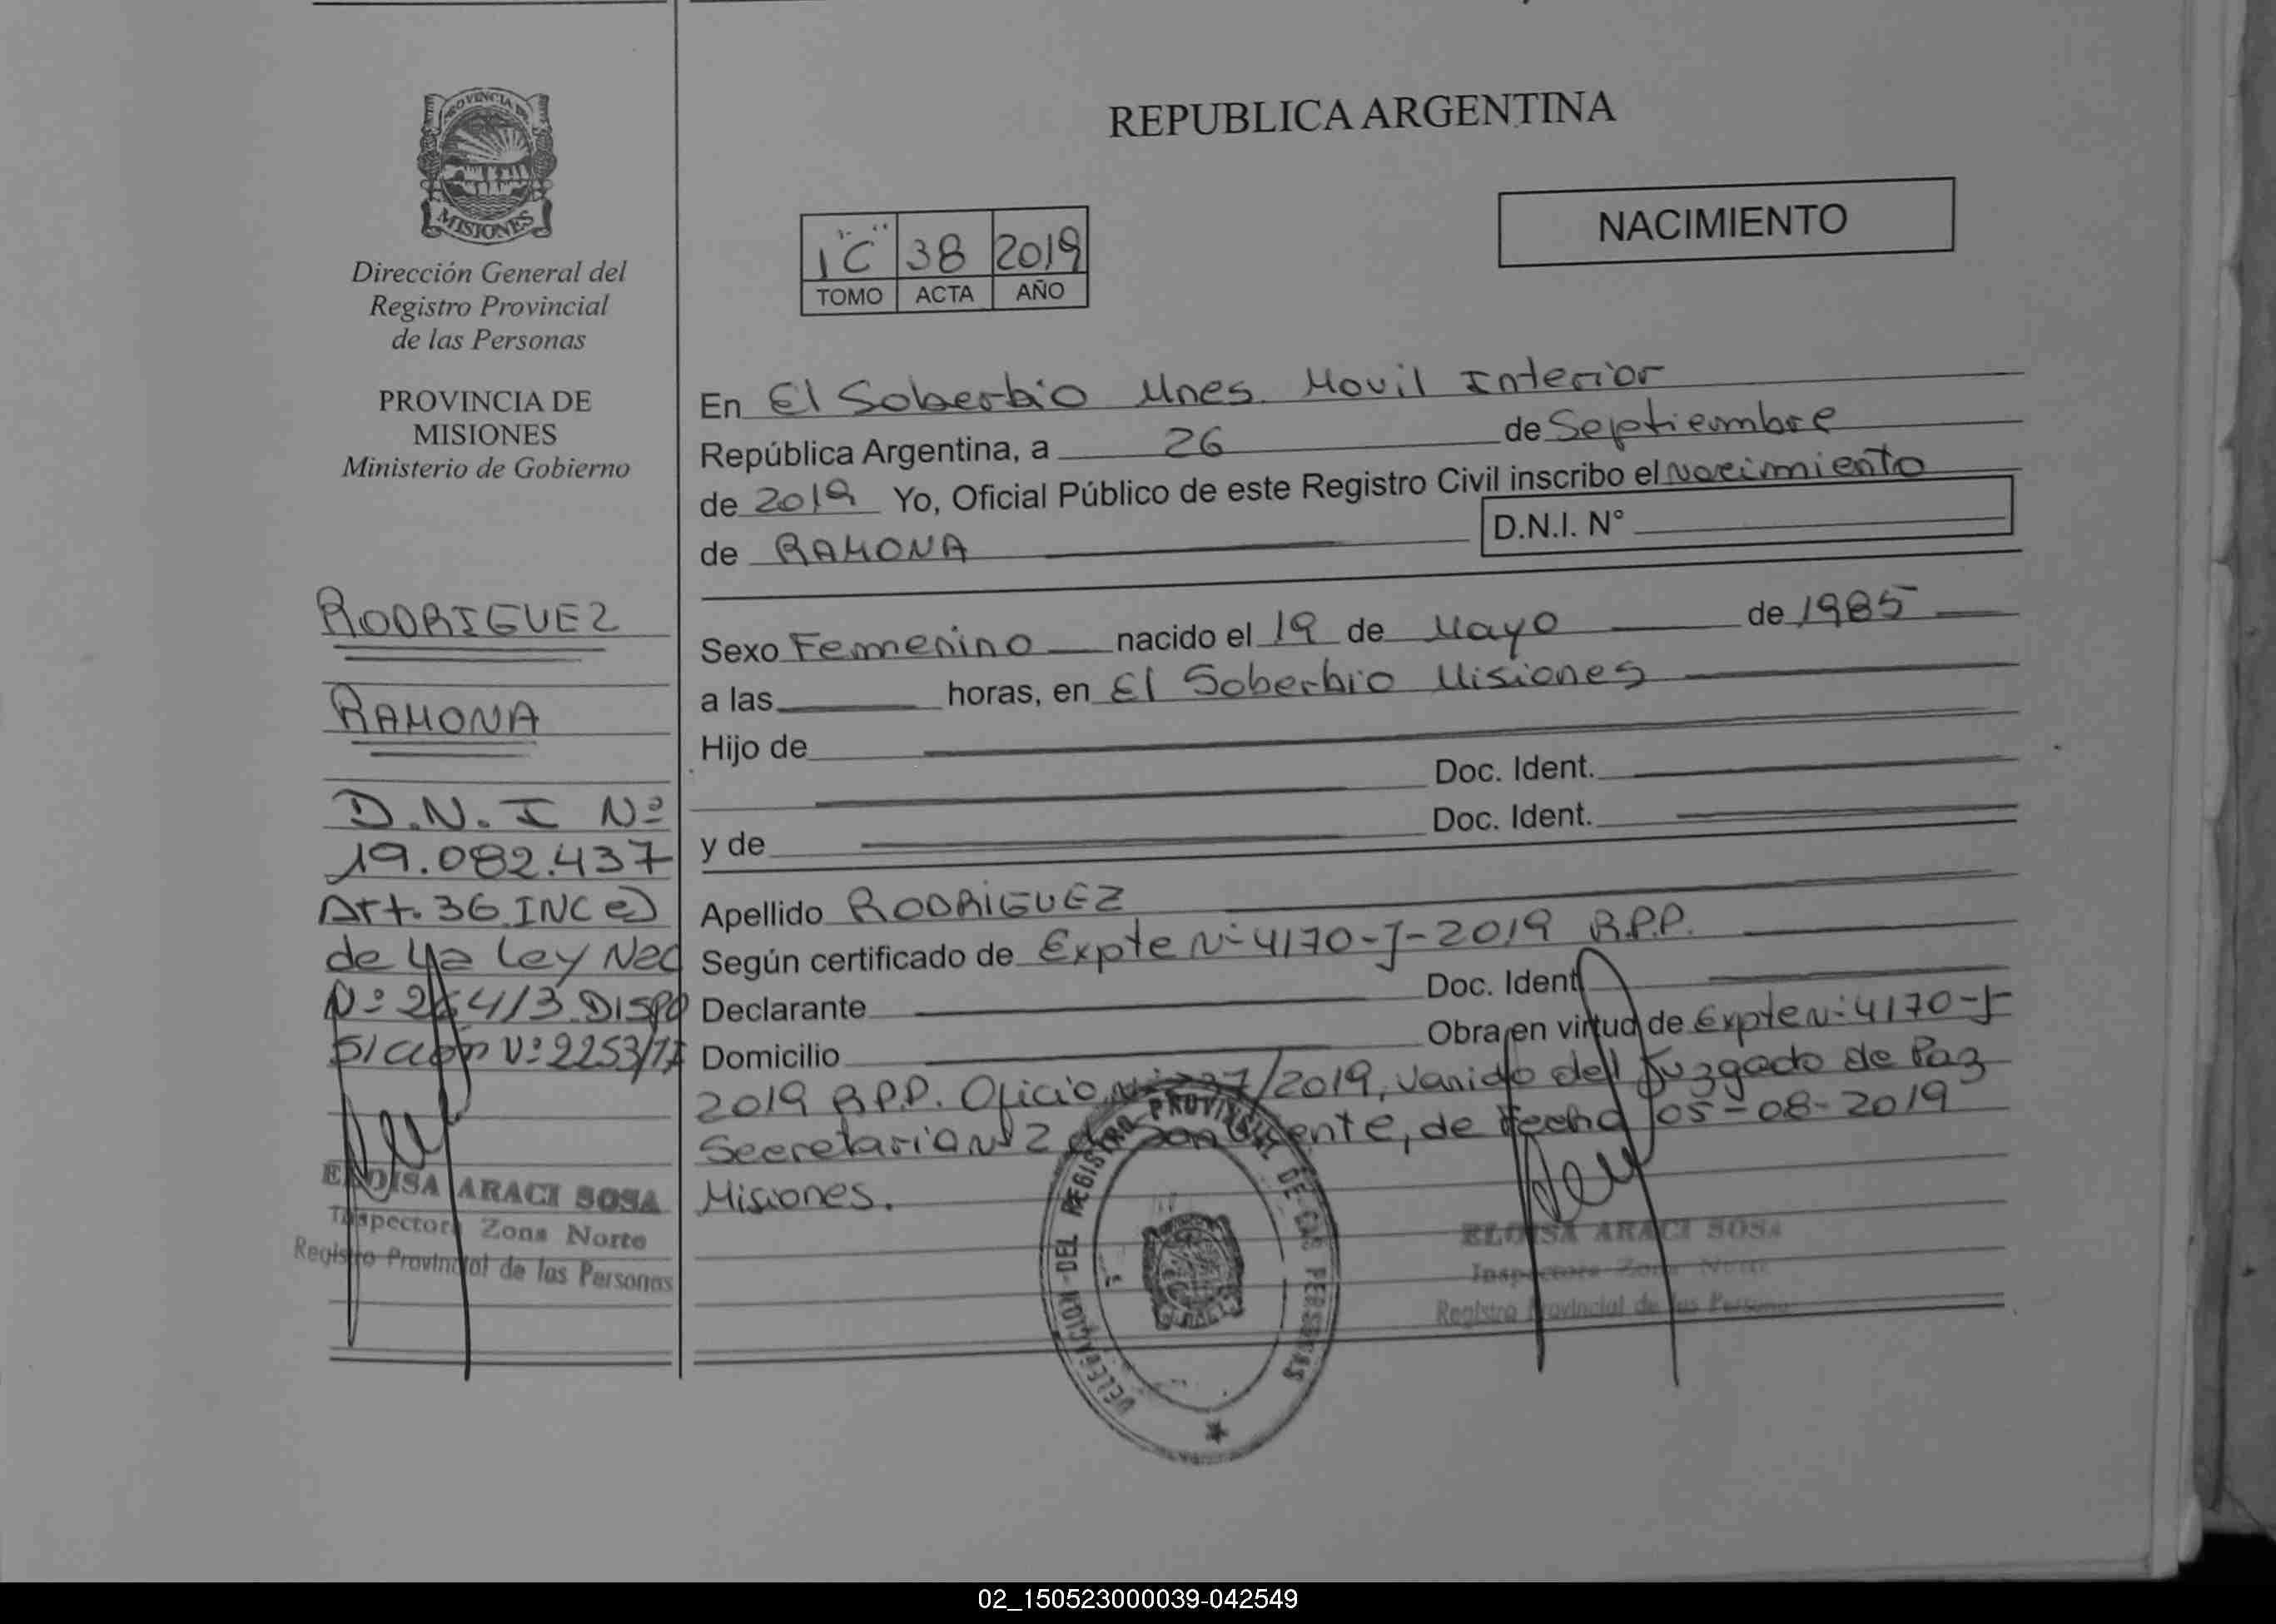 PROVINCIA DE
MISIONES
Dirección General del
Registro Provincial
de las Personas
PROVINCIA DE
MISIONES
Ministerio de Gobierno
RODRIGUEZ
RAMONA
D.N.I Nº
19.082.437
Art. 36 INC e)
de la Ley Nac
Nº 26413 DISPO
SICION Nº 2253/17
ELOISA ARACI SOSA
Inspectora Zona Norte
Registro Provincial de las Personas
REPUBLICA ARGENTINA
NACIMIENTO
1"C" 38 2019
TOMO ACTA AÑO
En El Soberbio Mnes. Movil Interior
República Argentina, a 26 de Septiembre
de 2019 Yo, Oficial Público de este Registro Civil inscribo el Nacimiento
de RAMONA D.N.I. N°
Sexo Femenino nacido el 19 de Mayo de 1985
a las horas, en El Soberbio Misiones
Hijo de
Doc. Ident.
y de Doc. Ident.
Apellido RODRIGUEZ
Según certificado de Expte Nº 4170-J-2019 R.P.P.
Declarante Doc. Ident
Domicilio Obra en virtud de Expte Nº 4170-J-
2019 R.P.P. Oficio /2019, venido del Juzgado de Paz
Secretaria Nº 2 de San Vicente, de fecha 05-08-2019
Misiones.
DELEGACION DEL REGISTRO PROVINCIAL DE LAS PERSONAS
ELOISA ARACI SOSA
Inspectora Zona Norte
Registro Provincial de las Personas
02_150523000039-042549